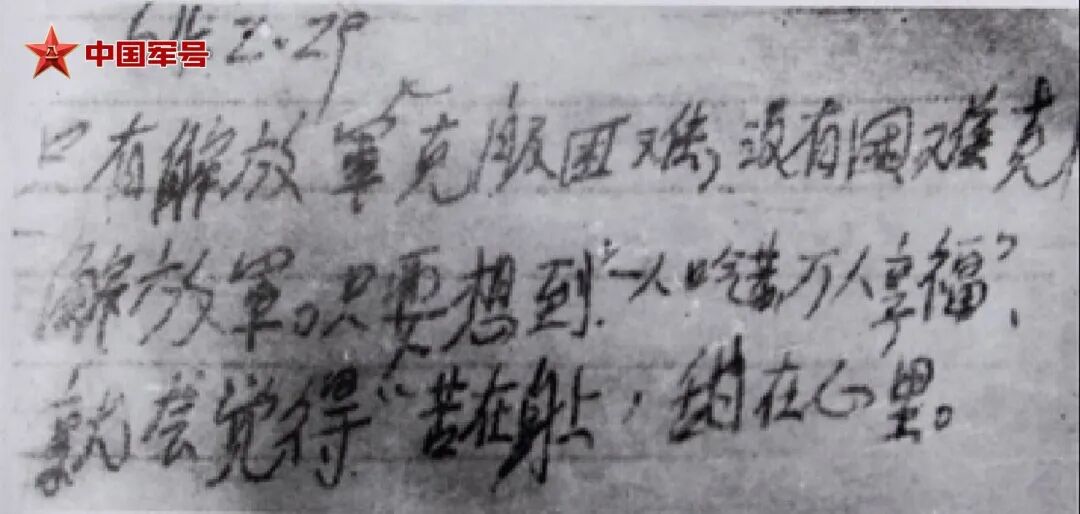 中国军号
64.2.29
只有解放军克服困难，没有困难克
解放军。只要想到“一人吃苦，万人享福”，
就会觉得“苦在身上，甜在心里。